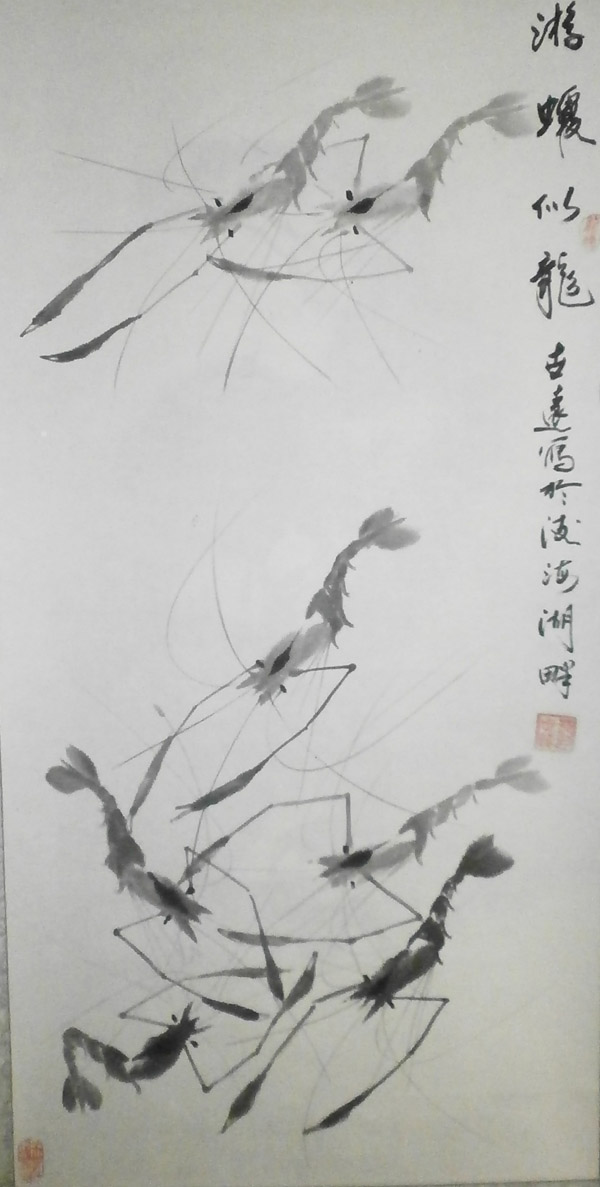 游蝦似龍
古遠寫於浚海湖畔